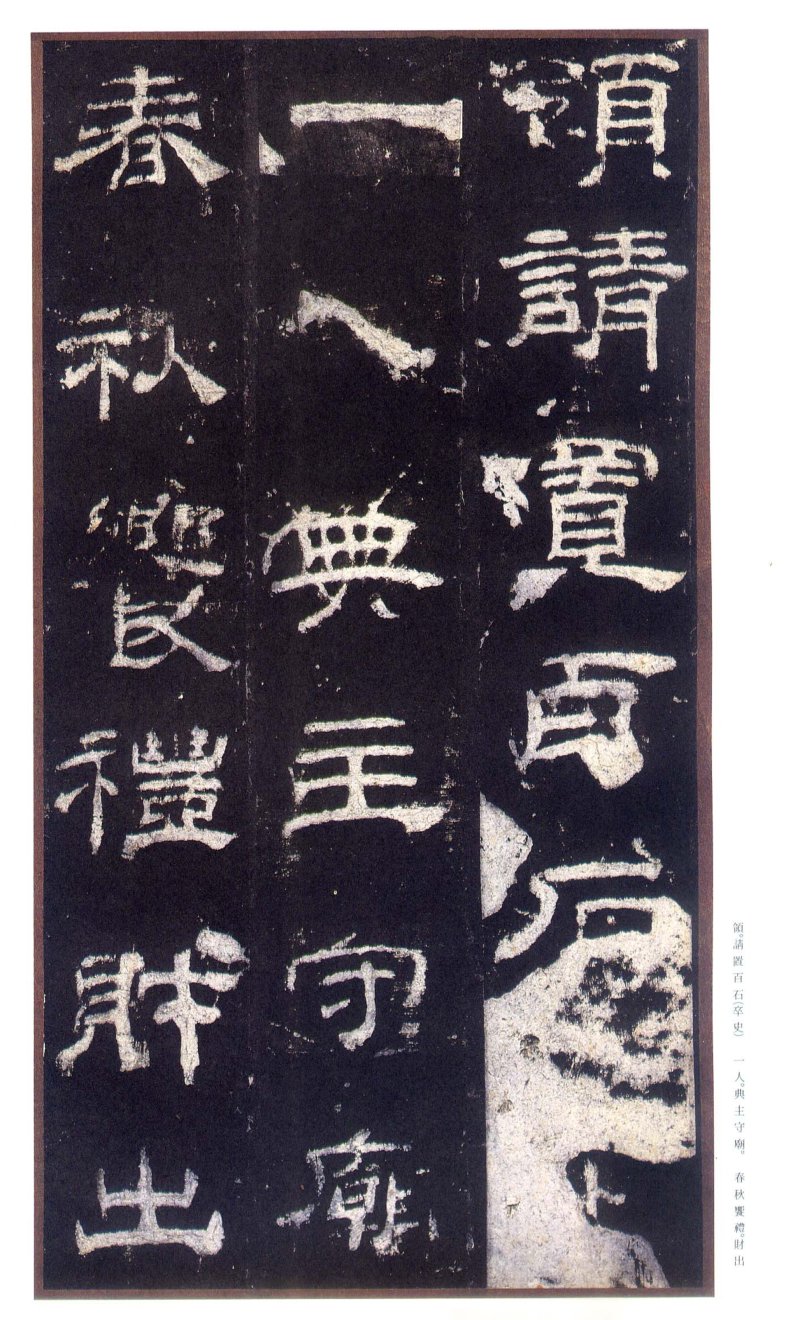 領請置百石
一人典主守廟
春秋饗禮財出
領。請置百石(卒史) 一人。典主守廟。 春秋饗禮。財出